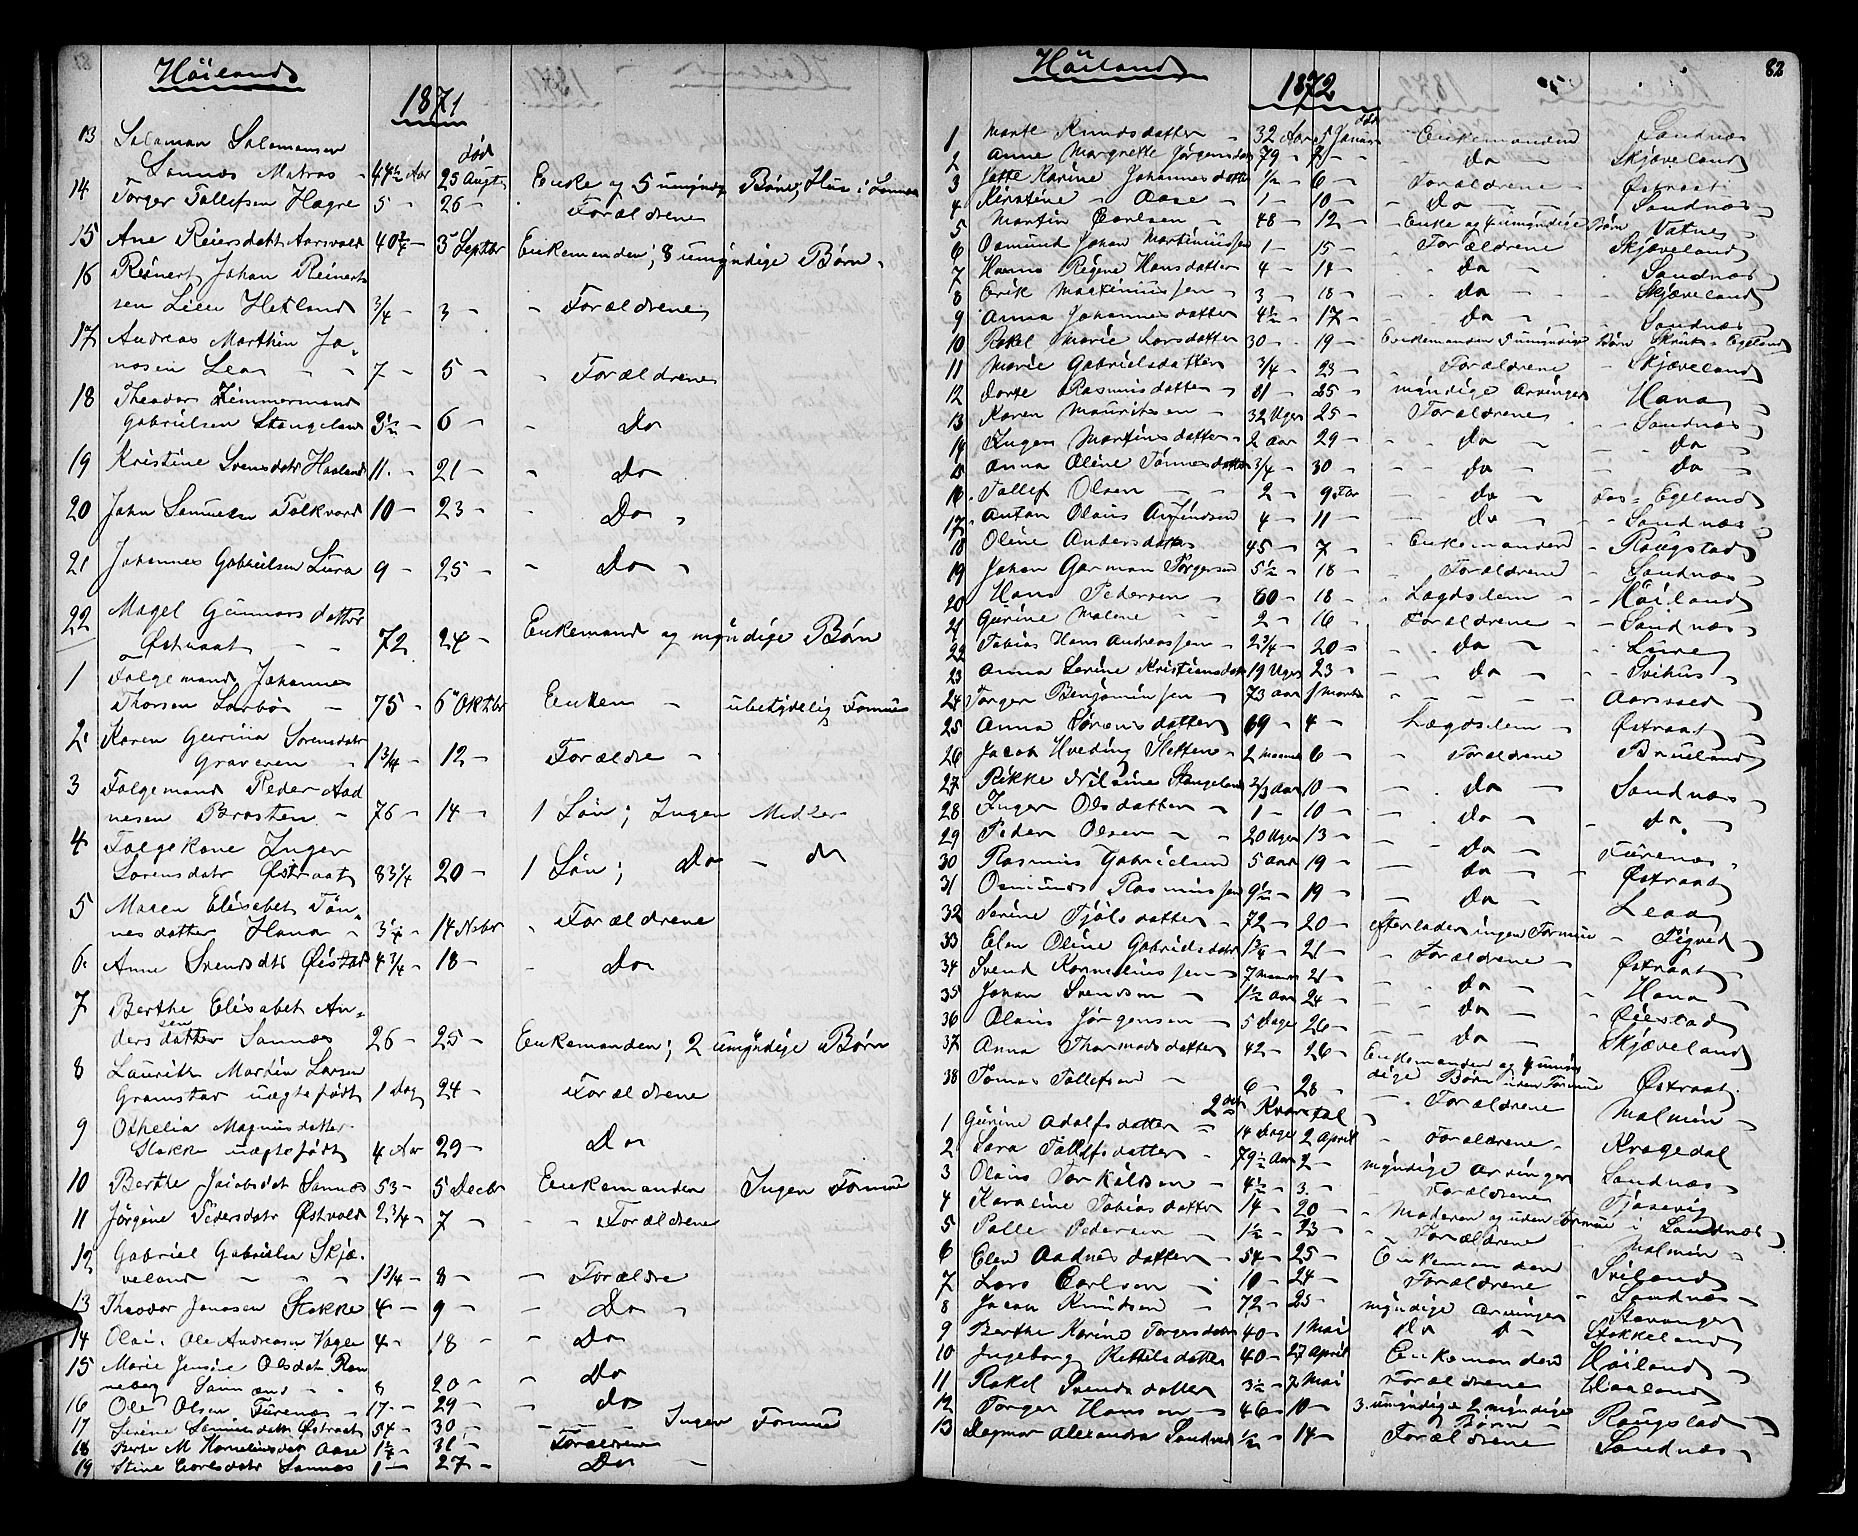 Höiland
1871
död
13 Salamon Salamonsen
Sannæs Matros - 44½ Aar 25 Augt Enke og 5 umyndig Børn, Hus i Sannæs
14 Torger Tollefsen Hagre 5 - 26 - Forældrene
15 Ane Reiersdatt Aarsvold 40¾ - 3 Septbr Enkemanden; 8 umyndige Børn
16 Reinert Johan Reinert
sen Lien Hetland 3/4 - 3 - - Forældrene
17 Andreas Marthin Jo-
nasen Lea - - 7 - 5 - - Forældrene
18 Theodor Zimmermand
Gabrielsen Stangeland 3½ - 6 - - Do
19 Kristine Svensdatr Haaland 11 - 21 - - Do
20 John Samuelsen Folkvord 10 - 23 - - Do
21 Johannes Gabrielsen Lura 9 - 25 - - Do
22 Magel Gunnars datter
Østraat - - 72 24 - Enkemand og myndige Børn
1 Følgemand Johannes
Thorsen Sørbø - 75 - 6 Oktbr Enken - ubetydelig Formue
2 Karen Gurina Sorensdatr
Graveren - 1 3/4 - 12 - Forældre -
3 Følgemand Peder Aad
nesen Brasten - 76 - 14 - 1 Søn; Ingen Midler
4 Følgekone Inger
Sorensdatr Østraat 83¼ 20 - 1 Søn; Do - do
5 Maren Elisabet Tön-
nes datter Hana - 3¼ - 14 Novbr - Forældrene
6 Anne Svendsdtr Øistad 4 3/4 - 18 - - Do
7 Berthe Elisabet An-
ders datter Sannæs 26 - 25 - Enkemanden; 2 umyndige Børn
8 Laurith Martin Larsen
Gramstad uægtefødt 1 Dag 24 - Forældrene
9 Othelia Magnusdatter
Stokke uægtefødt 4 Aar 29 - Do
10 Berthe Jacobsdat Sannæs 53 - 5 Decbr Enkemanden Ingen Formue
11 Jørgine Pedersdatr Østvold 2 3/4 - 7 - - Forældrene
12 Gabriel Gabrielsen Skjæ-
veland - - - 1 3/4 - 8 - - Forældre
13 Theodor Jonasen Stokke 4 - 9 - - Do -
14 Olai Ole Andreasen Vagle 4 - 18 - - Do
15 Marie Jensine Olsdat Ron
neberg Sannæs - - 20 - - Do
16 Ole Olsen Furenæs - 17 - 29 - - do
17 Serine Samuelsdatt Østraat 54 - 30 - - Ingen Formue
18 Berte M Kornelius dat Aase 1½ - 31 - Forældrene
19 Stine Carlsdatr Sannæs 1 - 27 - - Do -
Höiland
82
1872
1 Marte Knudsdatter - 32 Aar 5 Januar Enkemanden Sandnæs
2 Anne Margrette Jörgensdat 79 - 7 - - do - Skjæveland
3 Jette Karine Johannesdatter ½ - 6 - Forældrene - Østraat
4 Kirstine - Aase - 1 - 10 - - Do - - Sandnæs
5 Martin Carlsen - 48 - 12 - - Enke og 4 umyndige Børn Vatnes -
6 Osmund Johan Martiniussen 1 - 15 - Forældrene Skjæveland
7 Hanna Regine Hansdatter 4 - 14 - - do - - Sandnæs
8 Erik Martiniussen - 3 - 18 - - do - - Skjæveland
9 Anna Johannesdatter 4½ - 17 - - do - - Sandnæs
10 Rakel Marie Larsdatter 30 - 19 - Enkemanden 5 umyndige Børn Skrut - Egeland
11 Marie Gabrielsdatter 3/4 - 23 - Forældrene - Skjæveland
12 Dorte Rasmusdatter 81 - 25 - myndige Arvinger Hana
13 Karen Mauritsen - 32 Uger 25 - Forældrene - Sandnæs
14 Inger Martinsdatter - 2 Aar 29 - - do - - do -
15 Anna Oline Tönnesdatter 3/4 - 30 - - do - - do -
16 Tollef Olsen - - 2 - 9 Feb - do - Fos - Egeland
17 Anton Olaus Amundsen 4 - 11 - - do - - Sandnæs
18 Oline Andersdatter 45 - 7 - - Enkemanden - Raugstad
19 Johan Garman Torgersen 5½ - 18 - - Forældrene - Sandnæs
20 Hans Pedersen - 60 - 18 - - Lægdslem - - Höiland
21 Gurine Malene - - 2 - 16 - Forældrene - - Sandnæs
22 Tobias Hans Andreassen - 2 3/4 - 20 - - do - - Lura
23 Anna Serine Kristiansdatr 19 Uger 23 - - do - Svihus
24 Torger Benjaminsen - 73 Aar 1 Marts - - - Aarsvold
25 Anna Sörensdatter 69 - 4 - Lægdslem - Østraat
26 Jacob Hveding Sletten - 2 6 - Forældrene Brueland
27 Rikke Nilsine Stangeland 2/3 Aar 10 - - do - Sandnæs
28 Inger Olsdatter - 1 - 10 - - do - - do -
29 Peder Olsen - - 20 Uger 13 - - do - Furenæs
30 Rasmus Gabrielsen 5 Aar 19 - - do - Østraat
31 Osmund Rasmussen 9½ - 19 - - do - Leaa
32 Serine Tjölsdatter - 72 - 20 - efterlader ingen Formue - Tigved
33 Elen Oline Gabrielsdatr 1¾ - 21 - - Forældrene - Østraat
34 Svend Korneliussen - 7 21 - - do - - Hana
35 Johan Svendsen - 1½ Aar 24 - - do - Øiestad
36 Olaus Jörgensen - 5 Dage 26 - - do - Skjæveland
37 Anna Thormodsdatter 42 - 26 - Enkemanden og 4 umyn
dige Børn uden Formue Østraat
38 Tomas Tollefsen - 6 - 28 - - Forældrene Malmin
2det Kvartal
1 Gurine Adolfsdatter - 14 Dage 2 April - Forældrene - Kragedal
2 Sara Tollefsdatter - 79½ Aar 2 - myndige Arvinger Sandnæs
3 Olaus Torkildsen - 4½ - 3 - - Forældrene Tjösevig
4 Karoline Tobiasdatter 14 - 20 - - Moderen og uden Formue i Sandnæs
5 Palle Pedersen - 1½ - 23 - - Forældrene - Malmin -
6 Elen Aadnesdatter - 54 - 25 - Enkemanden Sviland
7 Lars Carlsen - 10 - 24 - Forældrene - Sandnæs -
8 Jacob Knudsen - 72 - 25 - myndige Arvinger Stavanger
9 Berthe Karine Torgersdatr 40 - 1 Mai do d - Stokkeland
10 Ingeborg Kittilsdatter 40 - 27 April Enkemanden Höiland
11 Rakel Svends datter 3½ - 7 Mai Forældrene Haaland
12 Torger Hansen - 46 - 10 - 3 umyndige 2 myndige
Børn - Raugstad
13 Dagmar Alexandra Sandved ½ - 14 - Forældrene - Sandnæs -